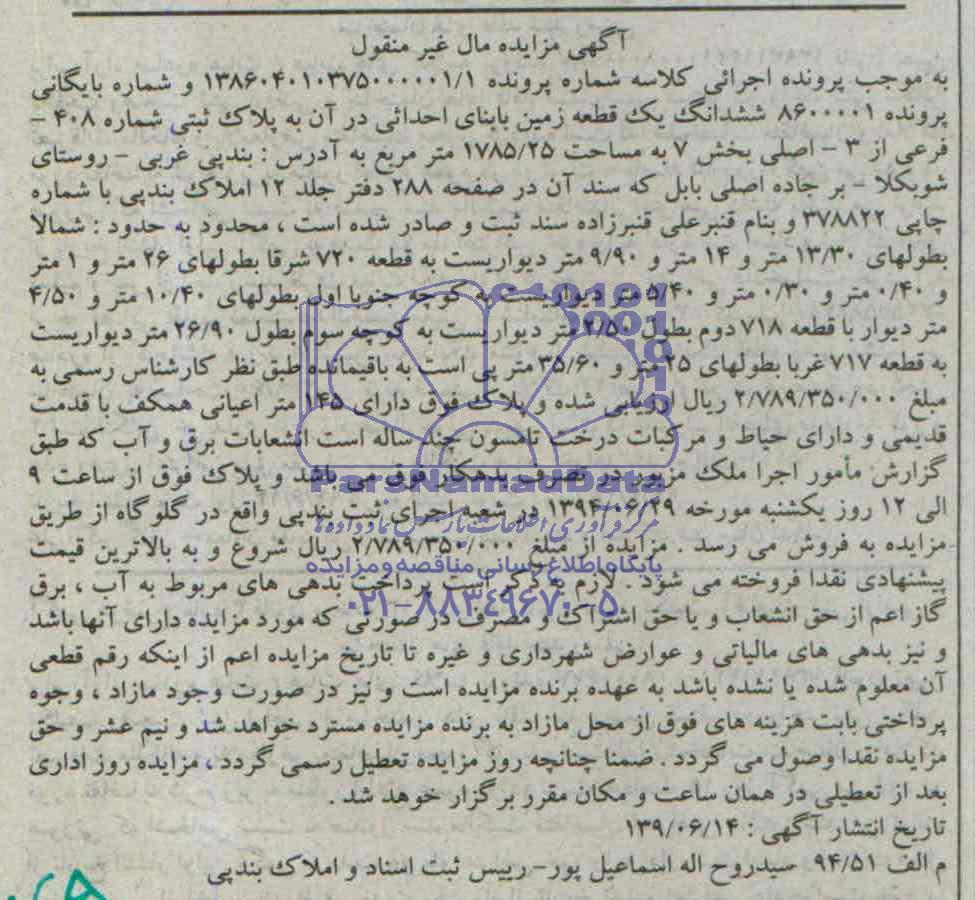 آگهی مزایده مال غیر منقول
به موجب پرونده اجرائی کلاسه شماره پرونده ۱۳۸۶۰۴۰۱۰۳۷۵۰۰۰۰۰۱/۱ و شماره بایگانی
پرونده ۸۶۰۰۰۰۱ ششدانگ یک قطعه زمین بابنای احداثی در آن به پلاک ثبتی شماره ۴۰۸ –
فرعی از ۳ – اصلی بخش ۷ به مساحت ۱۷۸۵/۲۵ متر مربع به آدرس : بندپی غربی – روستای
شوبکلا – بر جاده اصلی بابل که سند آن در صفحه ۲۸۸ دفتر جلد ۱۲ املاک بندپی با شماره
چاپی ۳۷۸۸۲۲ و بنام قنبرعلی قنبرزاده سند ثبت و صادر شده است ، محدود به حدود : شمالا
بطولهای ۱۳/۳۰ متر و ۱۴ متر و ۹/۹۰ متر دیواریست به قطعه ۷۲۰ شرقا بطولهای ۲۶ متر و ۱ متر
و ۰/۴۰ متر و ۰/۳۰ متر و ۵/۴۰ متر دیواریست به کوچه جنوبا اول بطولهای ۱۰/۴۰ متر و ۴/۵۰
متر دیوار با قطعه ۷۱۸ دوم بطول ۲/۵۰ متر دیواریست به کوچه سوم بطول ۲۶/۹۰ متر دیواریست
به قطعه ۷۱۷ غربا بطولهای ۲۵ متر و ۳۵/۶۰ متر پی است به باقیمانده طبق نظر کارشناس رسمی به
مبلغ ۲/۷۸۹/۳۵۰/۰۰۰ ریال ارزیابی شده و پلاک فوق دارای ۱۴۵ متر اعیانی همکف با قدمت
قدیمی و دارای حیاط و مرکبات درخت تامسون چند ساله است انشعابات برق و آب که طبق
گزارش مأمور اجرا ملک مزبور در تصرف بدهکار فوق می باشد و پلاک فوق از ساعت ۹
الی ۱۲ روز یکشنبه مورخه ۱۳۹۴/۰۶/۲۹ در شعبه اجرای ثبت بندپی واقع در گلوگاه از طریق
مزایده به فروش می رسد . مزایده از مبلغ ۲/۷۸۹/۳۵۰/۰۰۰ ریال شروع و به بالاترین قیمت
پیشنهادی نقدا فروخته می شود . لازم بذکر است پرداخت بدهی های مربوط به آب ، برق
گاز اعم از حق انشعاب و یا حق اشتراک و مصرف در صورتی که مورد مزایده دارای آنها باشد
و نیز بدهی های مالیاتی و عوارض شهرداری و غیره تا تاریخ مزایده اعم از اینکه رقم قطعی
آن معلوم شده یا نشده باشد به عهده برنده مزایده است و نیز در صورت وجود مازاد ، وجوه
پرداختی بابت هزینه های فوق از محل مازاد به برنده مزایده مسترد خواهد شد و نیم عشر و حق
مزایده نقدا وصول می گردد . ضمنا چنانچه روز مزایده تعطیل رسمی گردد ، مزایده روز اداری
بعد از تعطیلی در همان ساعت و مکان مقرر برگزار خواهد شد .
تاریخ انتشار آگهی : ۱۳۹/۰۶/۱۴
م الف ۹۴/۵۱ سیدروح اله اسماعیل پور– رییس ثبت اسناد و املاک بندپی
ParsNamadData
مرکز فرآوری اطلاعات پارس نماد داده ها
پایگاه اطلاع رسانی مناقصه و مزایده
۰۲۱–۸۸۳۴۹۶۷۰–۵